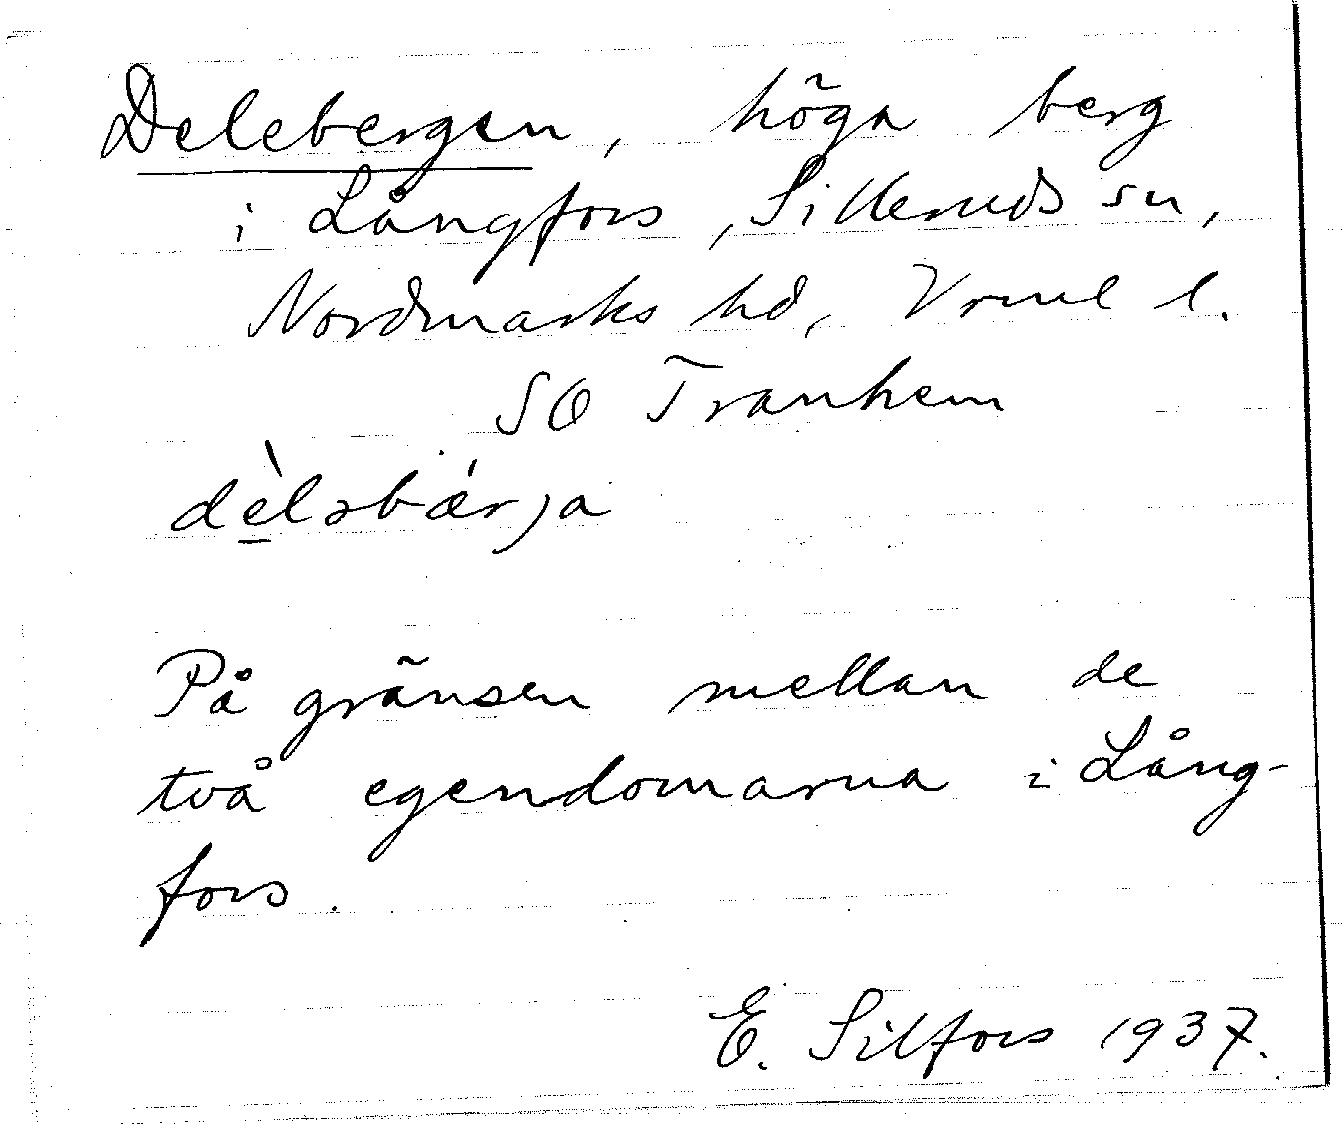 Delebergen, höga berg
i Långfors, Silleruds sn,
Nordmarks hd, Vrml l.
SO Tranhem
dèlsbǽrja
På gränsen mellan de
två egendomarna i Lång-
fors.
E. Silfors 1937.